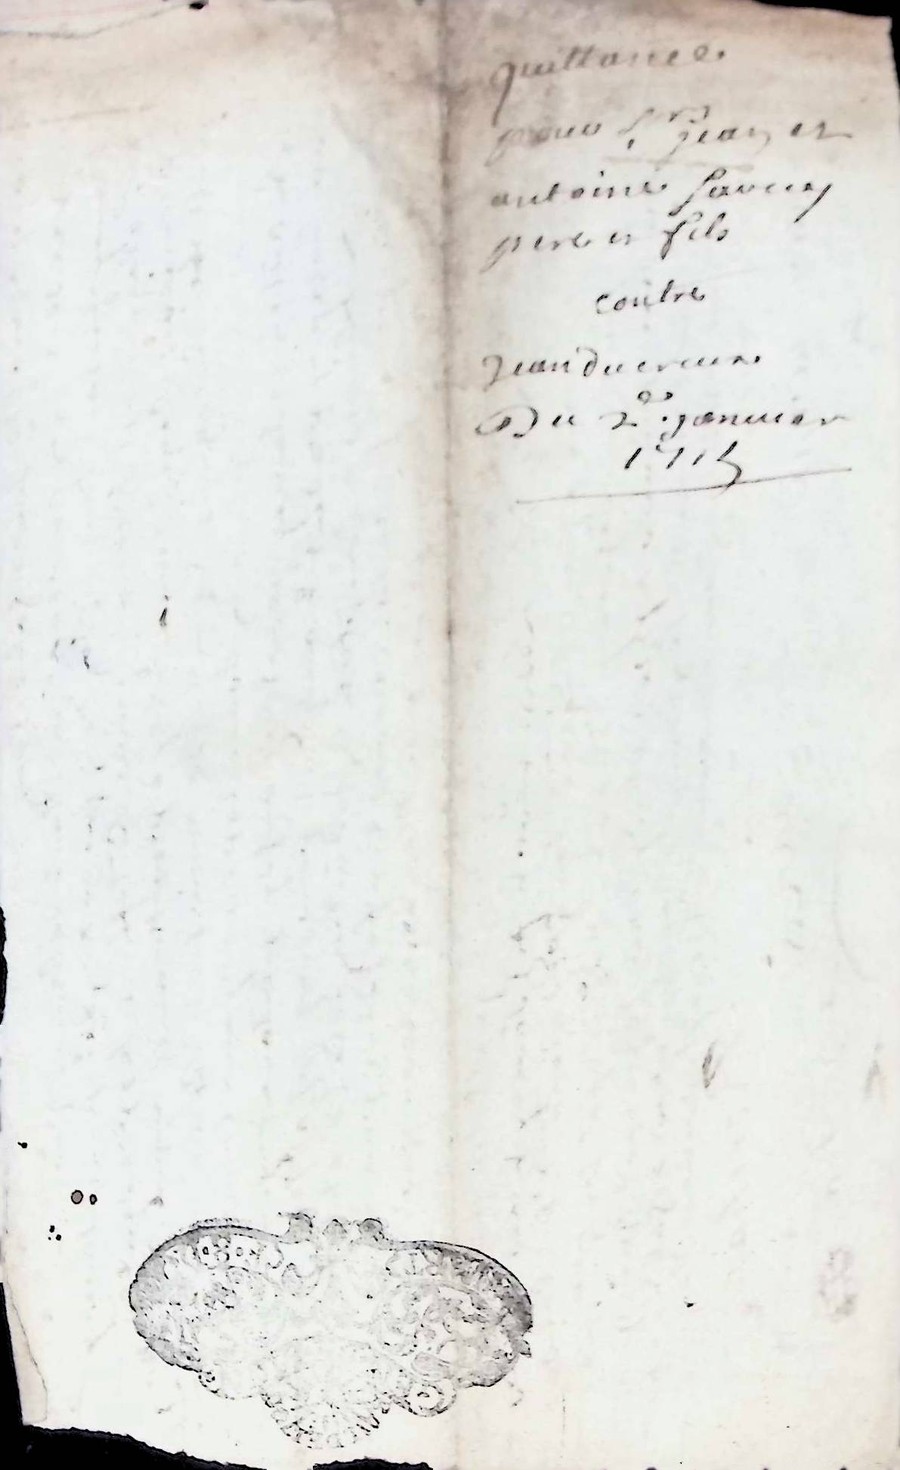 quittance
pour Srs jean et
antoine
pere et fils
contre
Jean ducreux
Du 2e janvier
1715